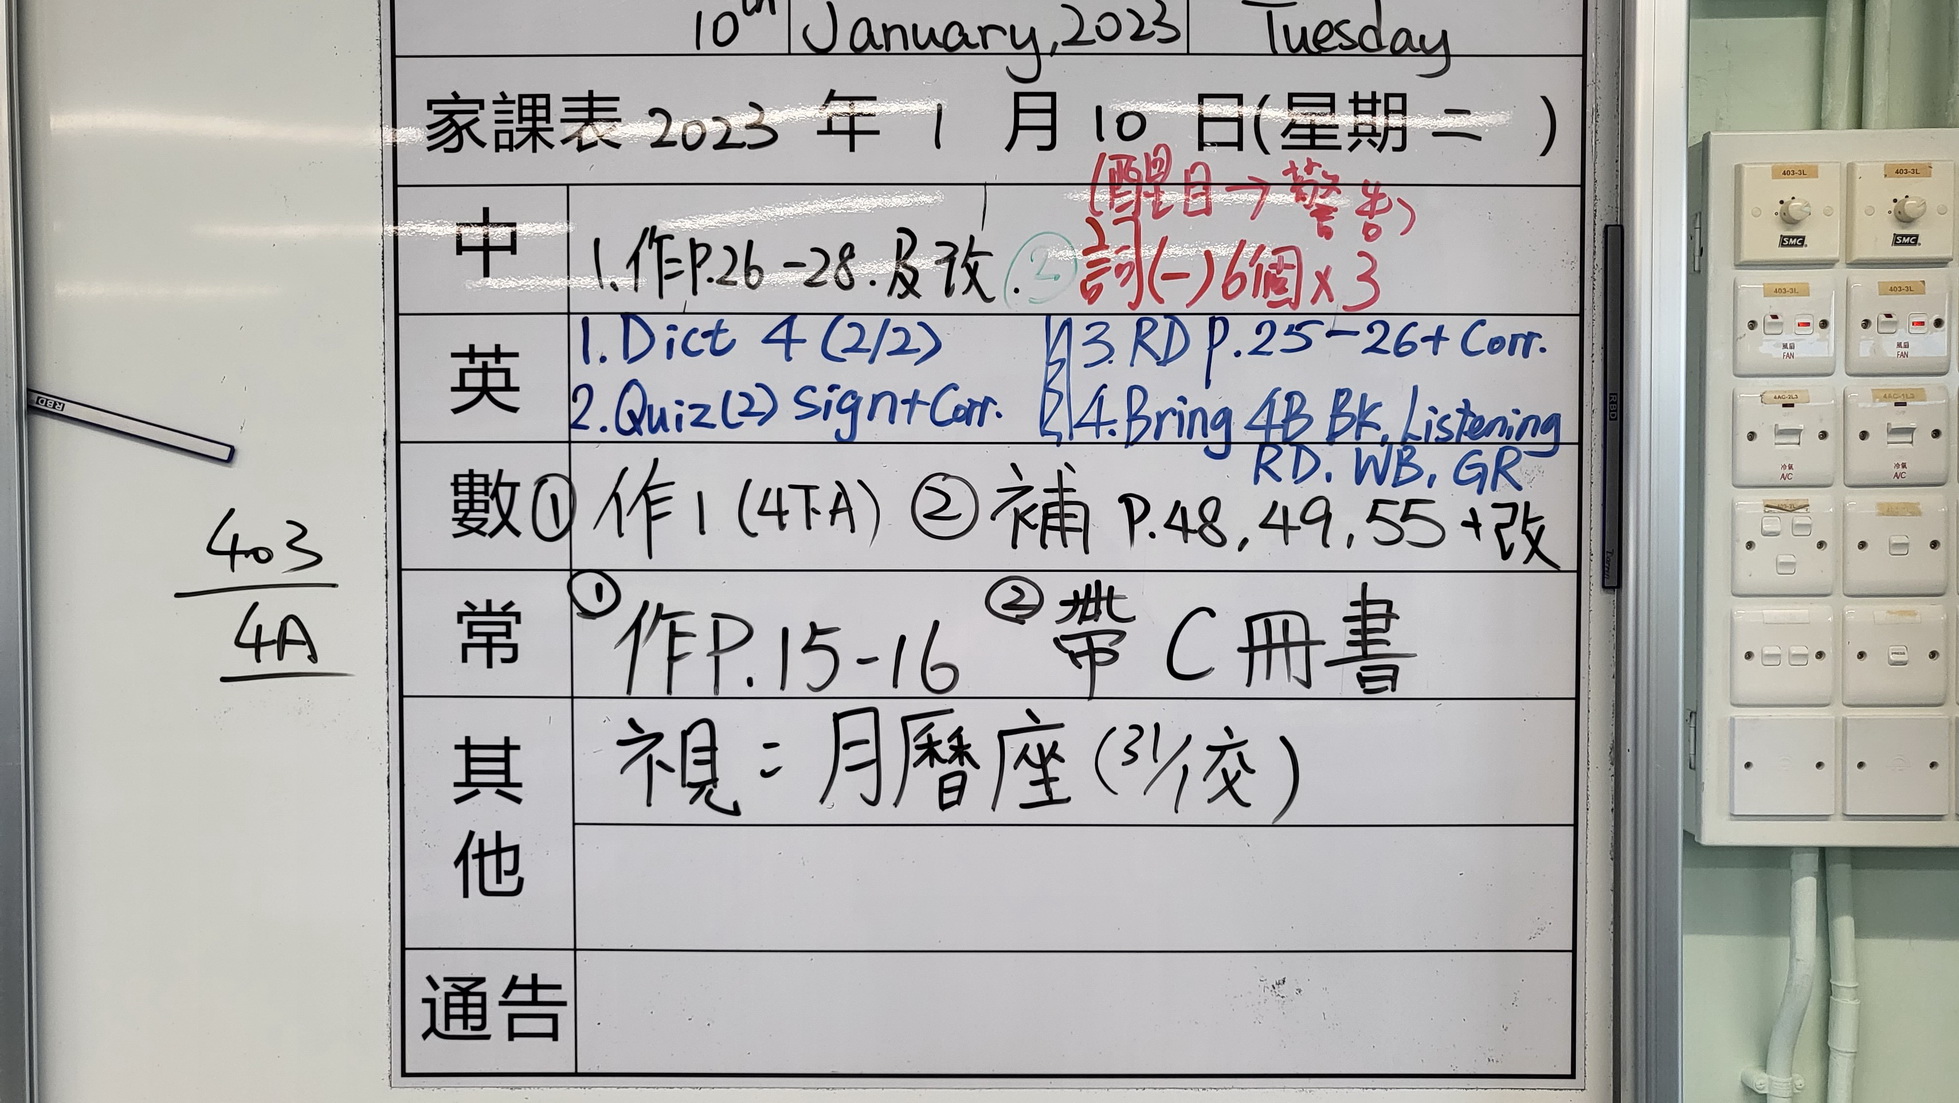 10th January, 2023 Tuesday
家課表 2023 年 1 月 10 日(星期二 )
(醒目→警告)
中 1.作P.26-28.及改. 2. 詞(一)6個x3
英 1.Dict 4 (2/2) 3. RD P.25-26+ Corr.
2.Quiz(2) Sign+Corr. 4.Bring 4B BK, Listening
RD. WB. GR
數 ① 作1 (4下A) ② 補 P.48, 49, 55 +改
常 ① 作P.15-16 ② 帶 C 冊書
其他 視：月曆座 (31/1交)
通告
403
4A
RBD
RBD
403-3L
403-3L
SMC
SMC
403-3L
403-3L
風扇
FAN
風扇
FAN
冷氣
A/C
冷氣
A/C